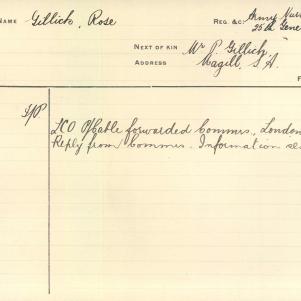 NAME Gellich, Rose
REG. &C. Army Nur
25th Gene
NEXT OF KIN Mr P. Gellich,
ADDRESS Magill, S.A.
F
LCO Cable forwarded Commrs., London
Reply from Commrs. Information se